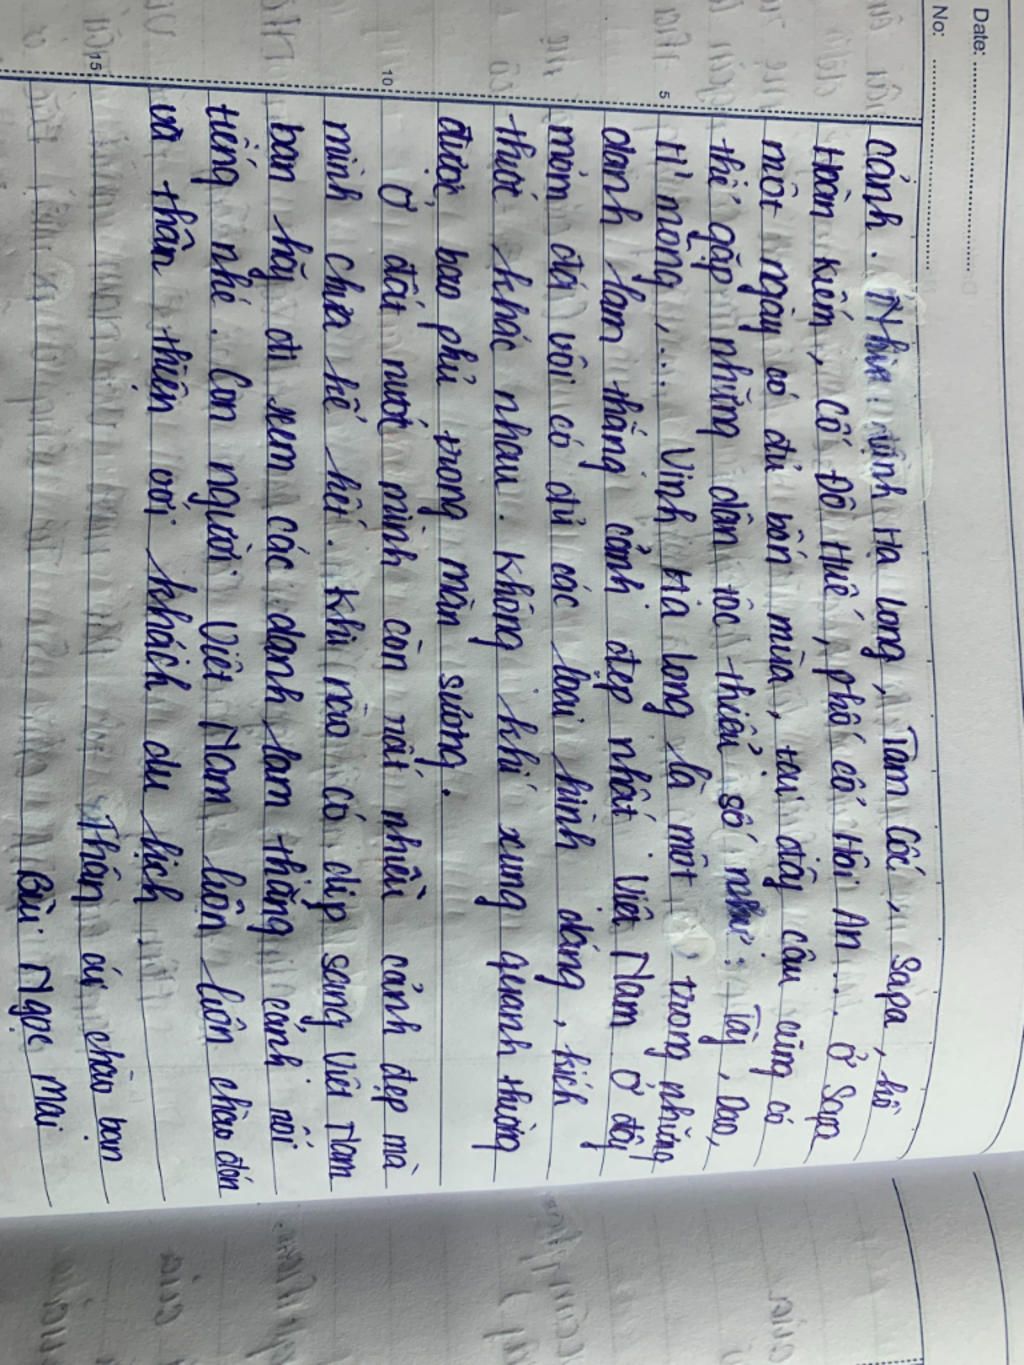 Date:
No:
cảnh. Như: vịnh Hạ Long, Tam Cốc, Sapa, hồ
Hoàn Kiếm, Cố Đô Huế, phố cổ Hội An... ở Sapa
một ngày có đủ bốn mùa, tại đây cậu cũng có
thể gặp những dân tộc thiểu số như: Tày, Dao,
5 H'mông,... Vịnh Hạ Long là một trong những
danh lam thắng cảnh đẹp nhất Việt Nam ở đây
mỏm đá vôi có đủ các loại hình dáng, kích
thước khác nhau. Không khí xung quanh thường
được bao phủ trong màn sương.
10 Ở đất nước mình còn rất nhiều cảnh đẹp mà
mình chưa kể hết. Khi nào có dịp sang Việt Nam
bạn hãy đi xem các danh lam thắng cảnh nổi
tiếng nhé. Con người Việt Nam luôn luôn chào đón
và thân thiện với khách du lịch.
15 Thân ái chào bạn
Bùi Ngọc Mai